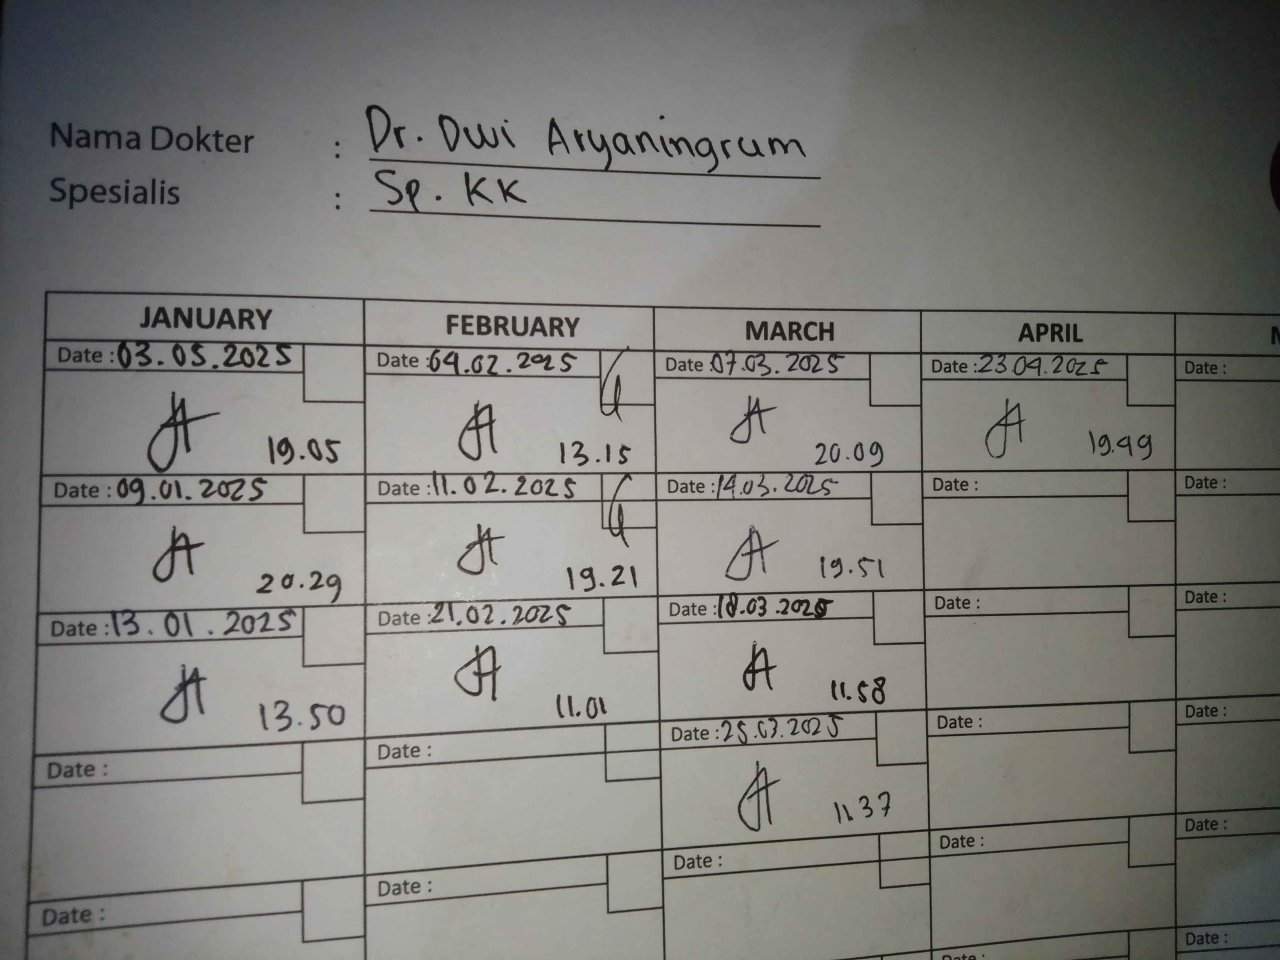 Nama Dokter : Dr. Dwi Aryaningrum
Spesialis : Sp. KK
JANUARY FEBRUARY MARCH APRIL
Date : 03.05.2025 Date : 04.02.2025 Date : 07.03.2025 Date : 23.04.2025 Date :
19.05 13.15 20.09 19.49
Date : 09.01.2025 Date : 11.02.2025 Date : 14.03.2025 Date : Date :
20.29 19.21 19.51
Date : 13.01.2025 Date : 21.02.2025 Date : 18.03.2025 Date : Date :
13.50 11.01 11.58
Date : Date : Date : 25.03.2025 Date : Date :
11.37
Date : Date : Date : Date : Date :
Date : Date :